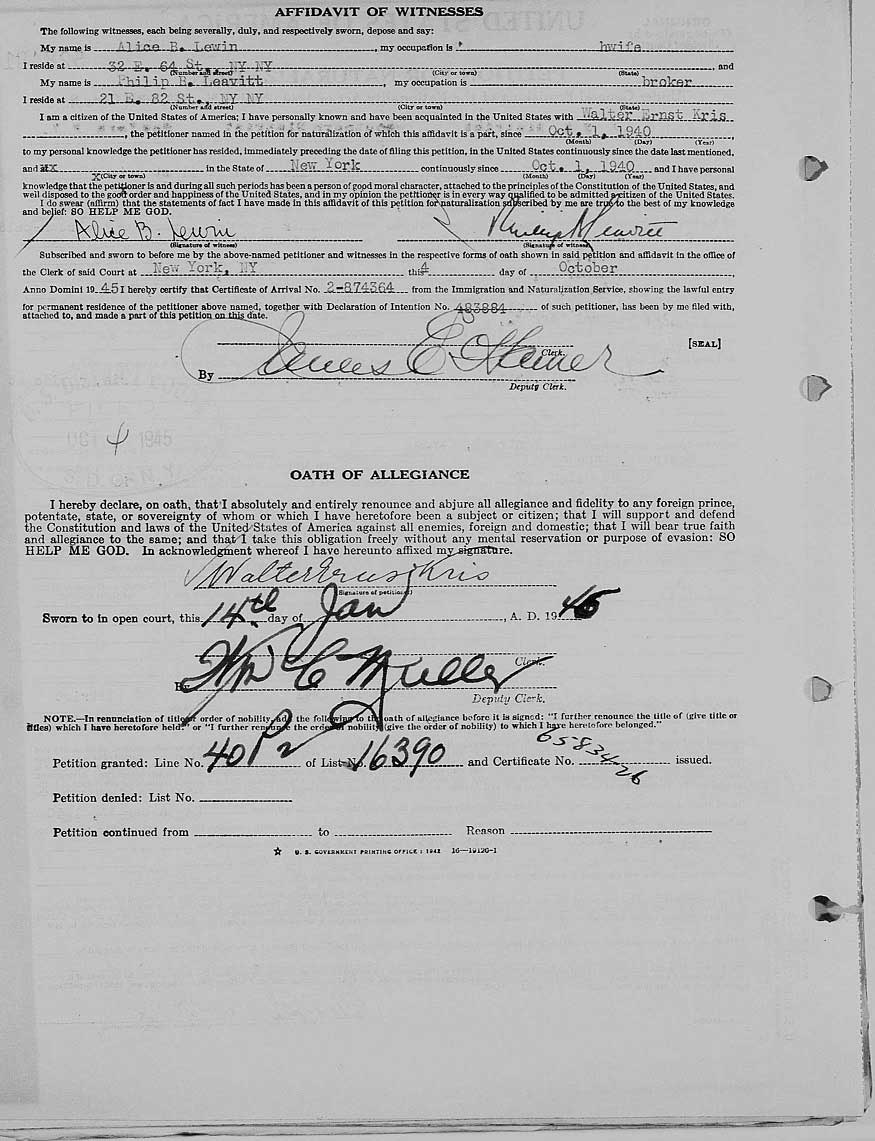 AFFIDAVIT OF WITNESSES
The following witnesses, each being severally, duly, and respectively sworn, depose and say:
My name is Alice B. Lewin, my occupation is hwife
I reside at 32 E. 64 St., NY NY, and
(Number and street) (City or town) (State)
My name is Philip B. Leavitt, my occupation is broker
I reside at 21 E. 82 St., NY NY
(Number and street) (City or town) (State)
I am a citizen of the United States of America; I have personally known and have been acquainted in the United States with Walter Ernst Kris
, the petitioner named in the petition for naturalization of which this affidavit is a part, since Oct. 1, 1940
(Month) (Day) (Year)
to my personal knowledge the petitioner has resided, immediately preceding the date of filing this petition, in the United States continuously since the date last mentioned,
and in the State of New York continuously since Oct. 1, 1940 and I have personal
(City or town) (Month) (Day) (Year)
knowledge that the petitioner is and during all such periods has been a person of good moral character, attached to the principles of the Constitution of the United States, and
well disposed to the good order and happiness of the United States, and in my opinion the petitioner is in every way qualified to be admitted a citizen of the United States.
I do swear (affirm) that the statements of fact I have made in this affidavit of this petition for naturalization subscribed by me are true to the best of my knowledge
and belief: SO HELP ME GOD.
Alice B. Lewin Philip B. Leavitt
(Signature of witness) (Signature of witness)
Subscribed and sworn to before me by the above-named petitioner and witnesses in the respective forms of oath shown in said petition and affidavit in the office of
the Clerk of said Court at New York, NY this 4 day of October,
Anno Domini 1945 I hereby certify that Certificate of Arrival No. 2-874364 from the Immigration and Naturalization Service, showing the lawful entry
for permanent residence of the petitioner above named, together with Declaration of Intention No. 483884 of such petitioner, has been by me filed with,
attached to, and made a part of this petition on this date.
Clerk. [SEAL]
By James E.
Deputy Clerk.
OCT 4 1945
OATH OF ALLEGIANCE
I hereby declare, on oath, that I absolutely and entirely renounce and abjure all allegiance and fidelity to any foreign prince,
potentate, state, or sovereignty of whom or which I have heretofore been a subject or citizen; that I will support and defend
the Constitution and laws of the United States of America against all enemies, foreign and domestic; that I will bear true faith
and allegiance to the same; and that I take this obligation freely without any mental reservation or purpose of evasion: SO
HELP ME GOD. In acknowledgment whereof I have hereunto affixed my signature.
Walter Ernst Kris
(Signature of petitioner)
Sworn to in open court, this 14th day of Jan, A. D. 19
Clerk.
By Wm C Mueller
Deputy Clerk.
NOTE.—In renunciation of title or order of nobility, add the following to the oath of allegiance before it is signed: "I further renounce the title of (give title or
titles) which I have heretofore held." or "I further renounce the order of nobility (give the order of nobility) to which I have heretofore belonged."
Petition granted: Line No. 40 of List No. 16390 and Certificate No. 6583426 issued.
Petition denied: List No.
Petition continued from to Reason
☆ U. S. GOVERNMENT PRINTING OFFICE : 1942 16—19120-1